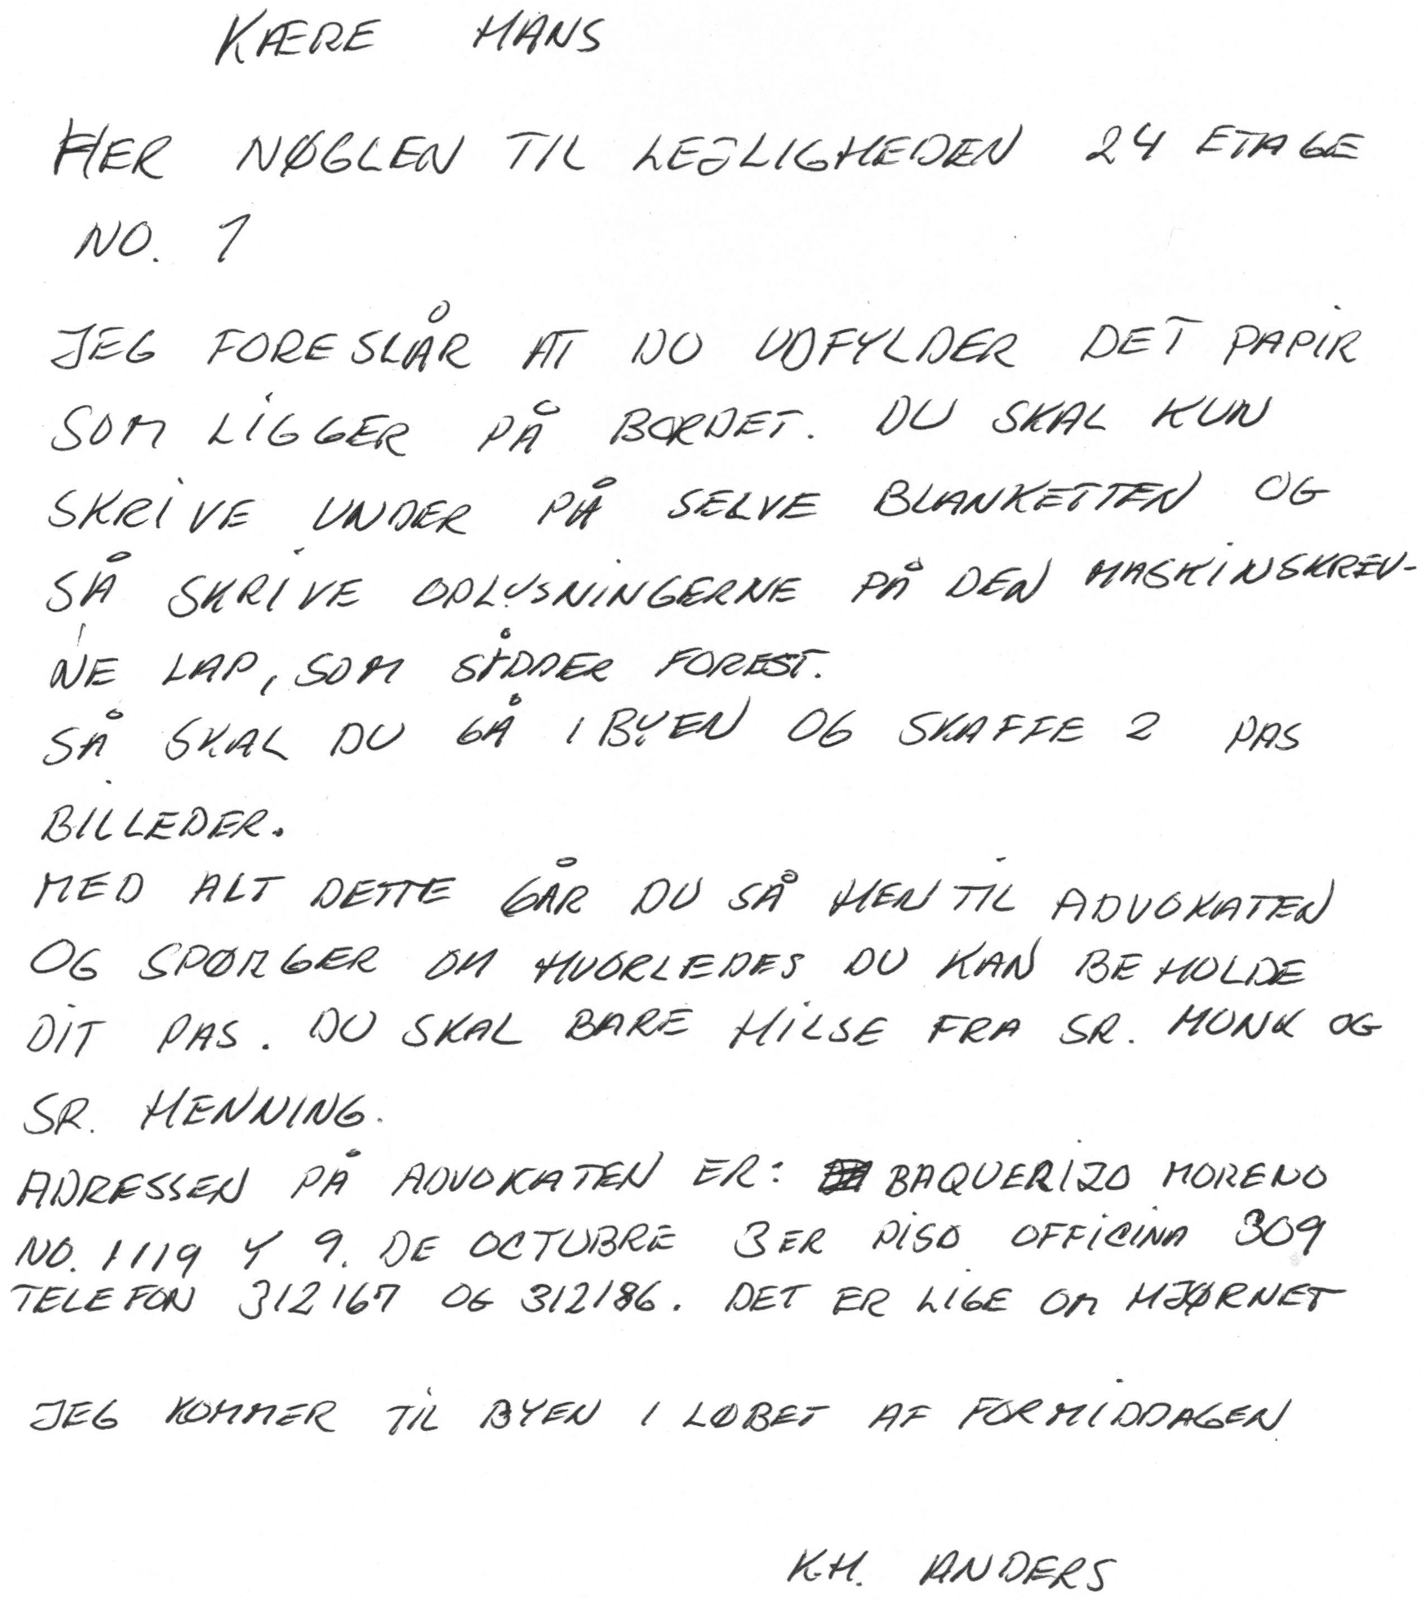 KÆRE HANS
HER NØGLEN TIL LEJLIGHEDEN 24 ETAGE
NO. 1
JEG FORESLÅR AT DU UDFYLDER DET PAPIR
SOM LIGGER PÅ BORDET. DU SKAL KUN
SKRIVE UNDER PÅ SELVE BLANKETTEN OG
SÅ SKRIVE OPLYSNINGERNE PÅ DEN MASKINSKREV-
NE LAP, SOM SIDDER FOREST.
SÅ SKAL DU GÅ I BYEN OG SKAFFE 2 PAS
BILLEDER.
MED ALT DETTE GÅR DU SÅ HEN TIL ADVOKATEN
OG SPØRGER OM HVORLEDES DU KAN BEHOLDE
DIT PAS. DU SKAL BARE HILSE FRA SR. MUNK OG
SR. HENNING.
ADRESSEN PÅ ADVOKATEN ER: BAQUERIZO MORENO
NO. 1119 Y 9. DE OCTUBRE 3ER PISO OFFICINA 309
TELEFON 312167 OG 312186. DET ER LIGE OM HJØRNET
JEG KOMMER TIL BYEN I LØBET AF FORMIDDAGEN
KH. ANDERS